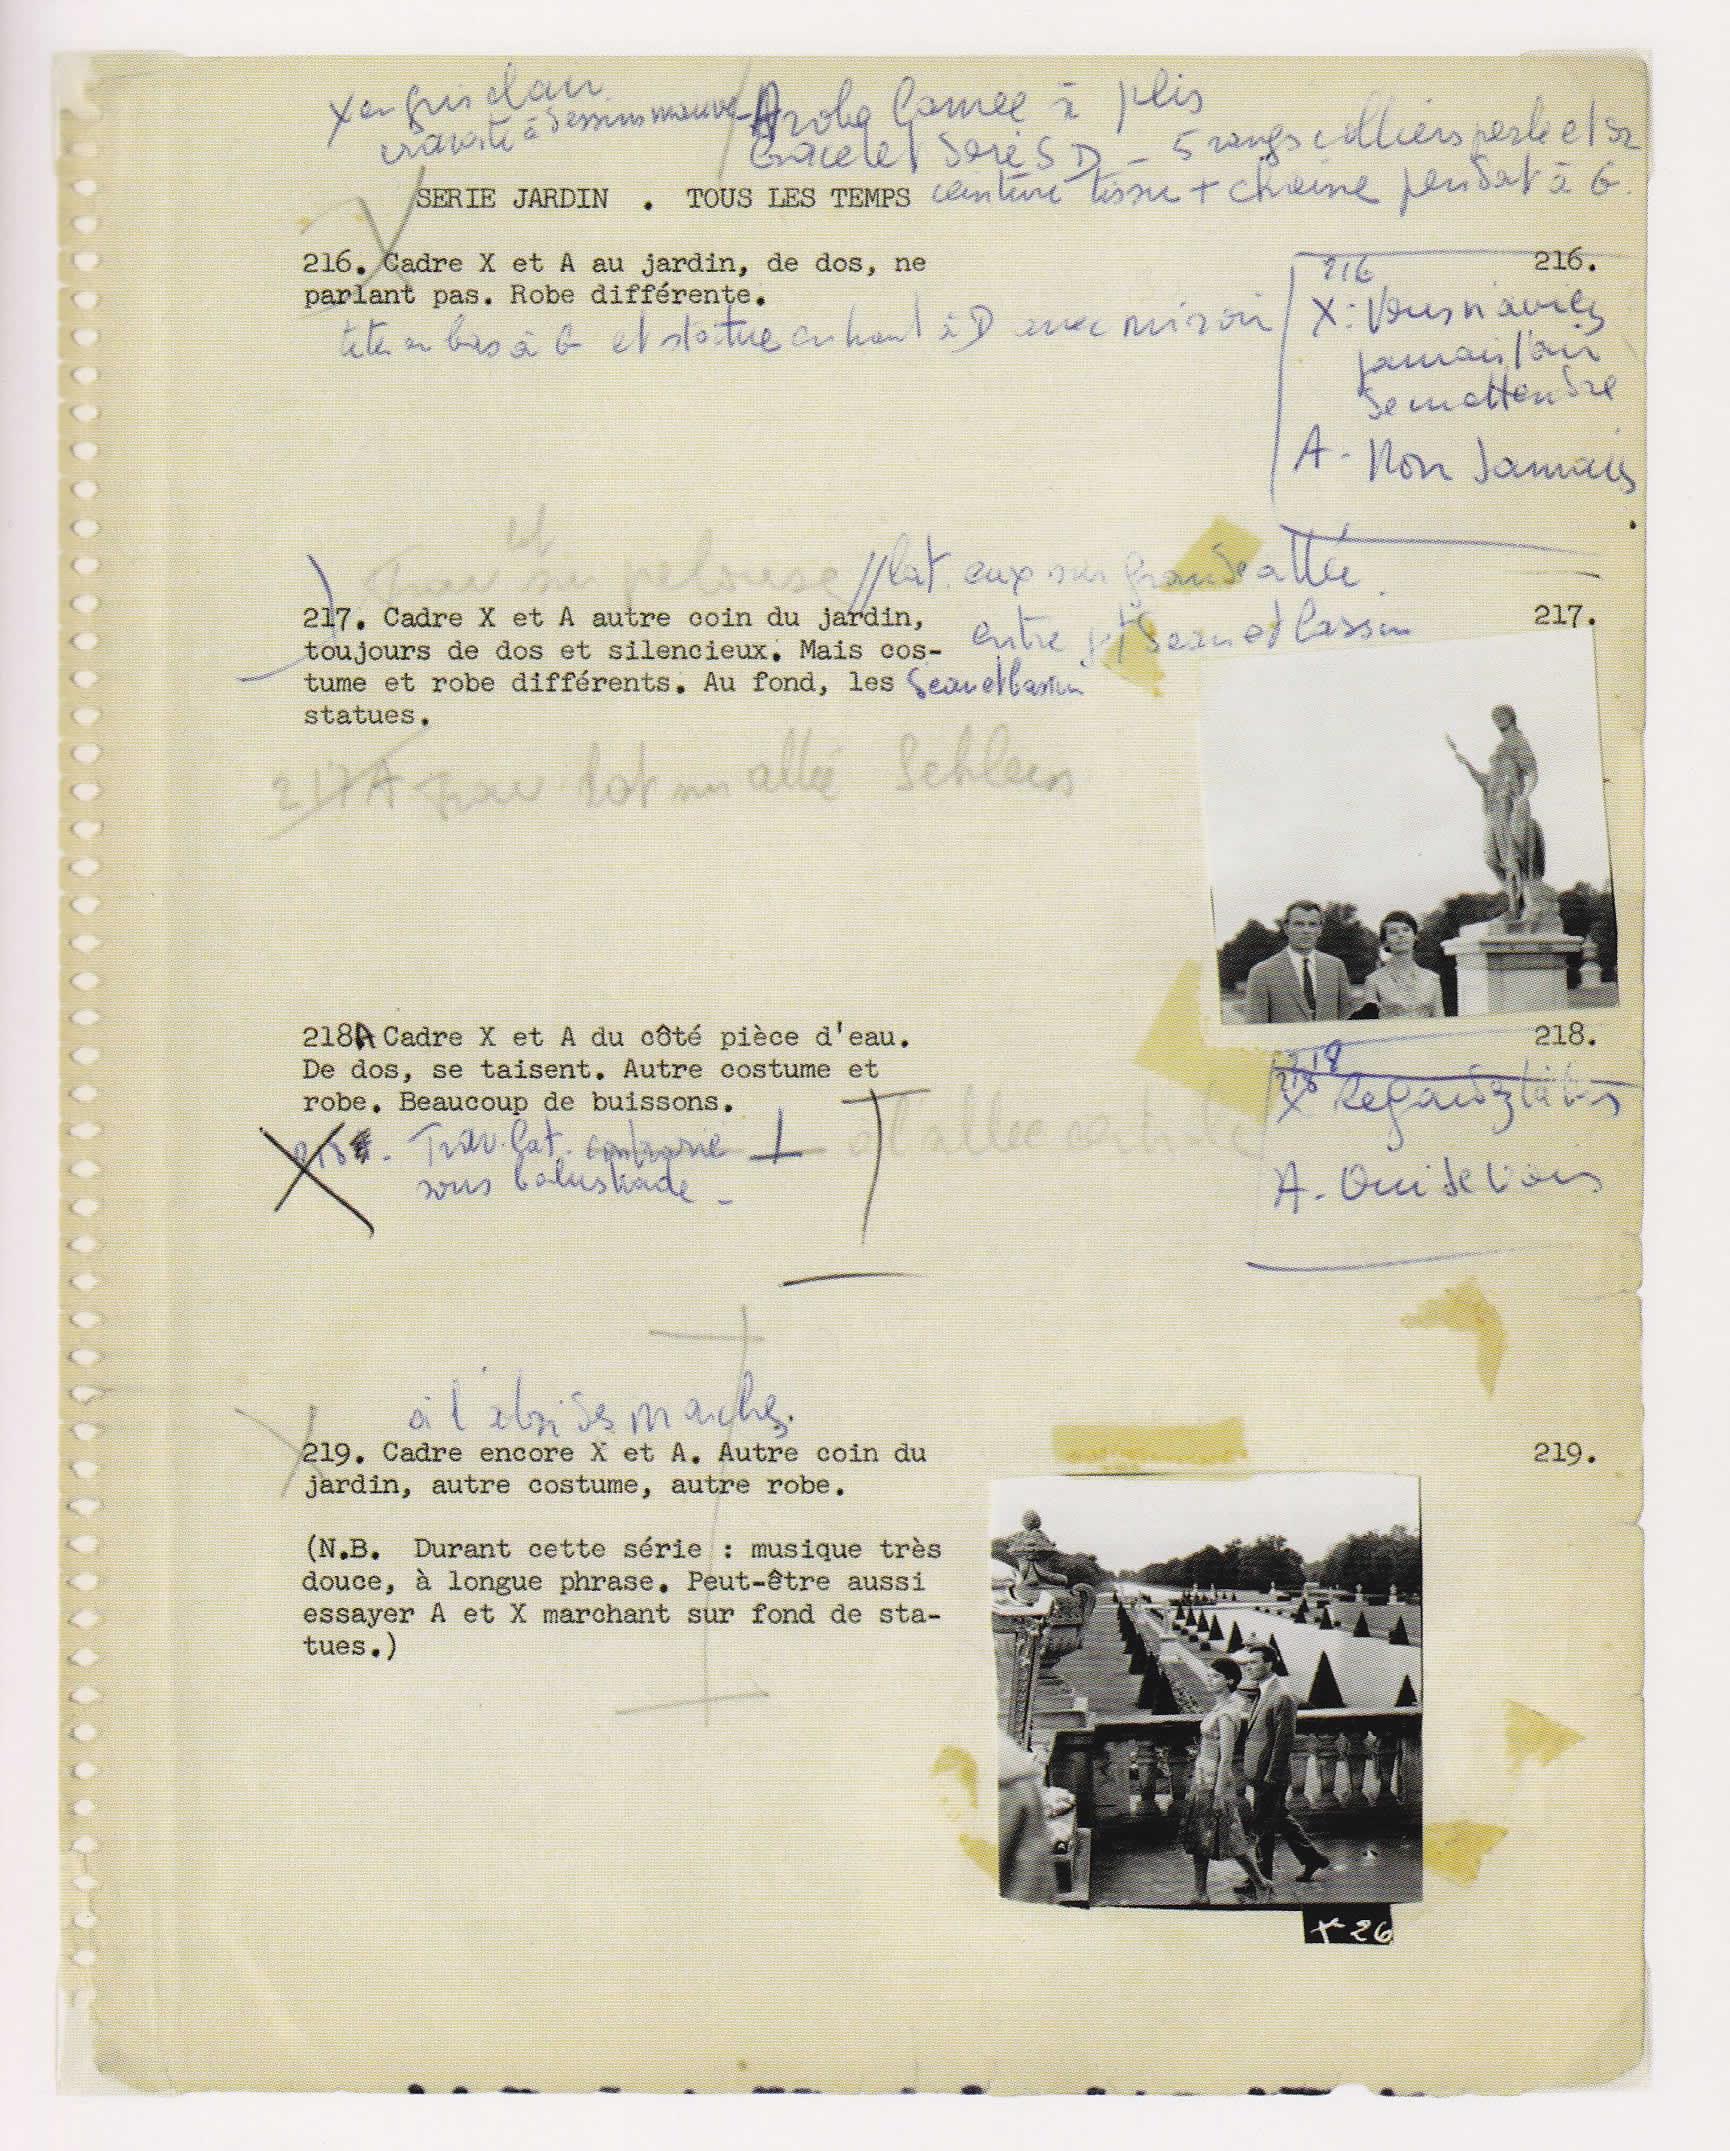 X en gris clair
cravate à dessins mauve
A robe lamée à plis
bracelet doré S D - 5 rangs colliers perle et or
ceinture tissu + chaine pendat à G.
SERIE JARDIN . TOUS LES TEMPS
216. Cadre X et A au jardin, de dos, ne
parlant pas. Robe différente.
tête en bas à G et statue en haut à D avec miroir
216.
216
X: Vous n'aviez
jamais l'air
de m'attendre
A - Non Jamais
et
Trav sur pelouse // lat. eux sur grande allée
217. Cadre X et A autre coin du jardin,
toujours de dos et silencieux. Mais cos-
tume et robe différents. Au fond, les
statues.
entre jet d'eau et bassin
jet d'eau et bassin
217.
217A Trav lat sur allée Schleiss
218A Cadre X et A du côté pièce d'eau.
De dos, se taisent. Autre costume et
robe. Beaucoup de buissons.
218. - Trav. lat. contrarié
sous balustrade -
et allée centrale
218.
218
218
X Regardez là-bas
A - Oui de l'eau
à l'abri des marches.
219. Cadre encore X et A. Autre coin du
jardin, autre costume, autre robe.
219.
(N.B. Durant cette série : musique très
douce, à longue phrase. Peut-être aussi
essayer A et X marchant sur fond de sta-
tues.)
X 26